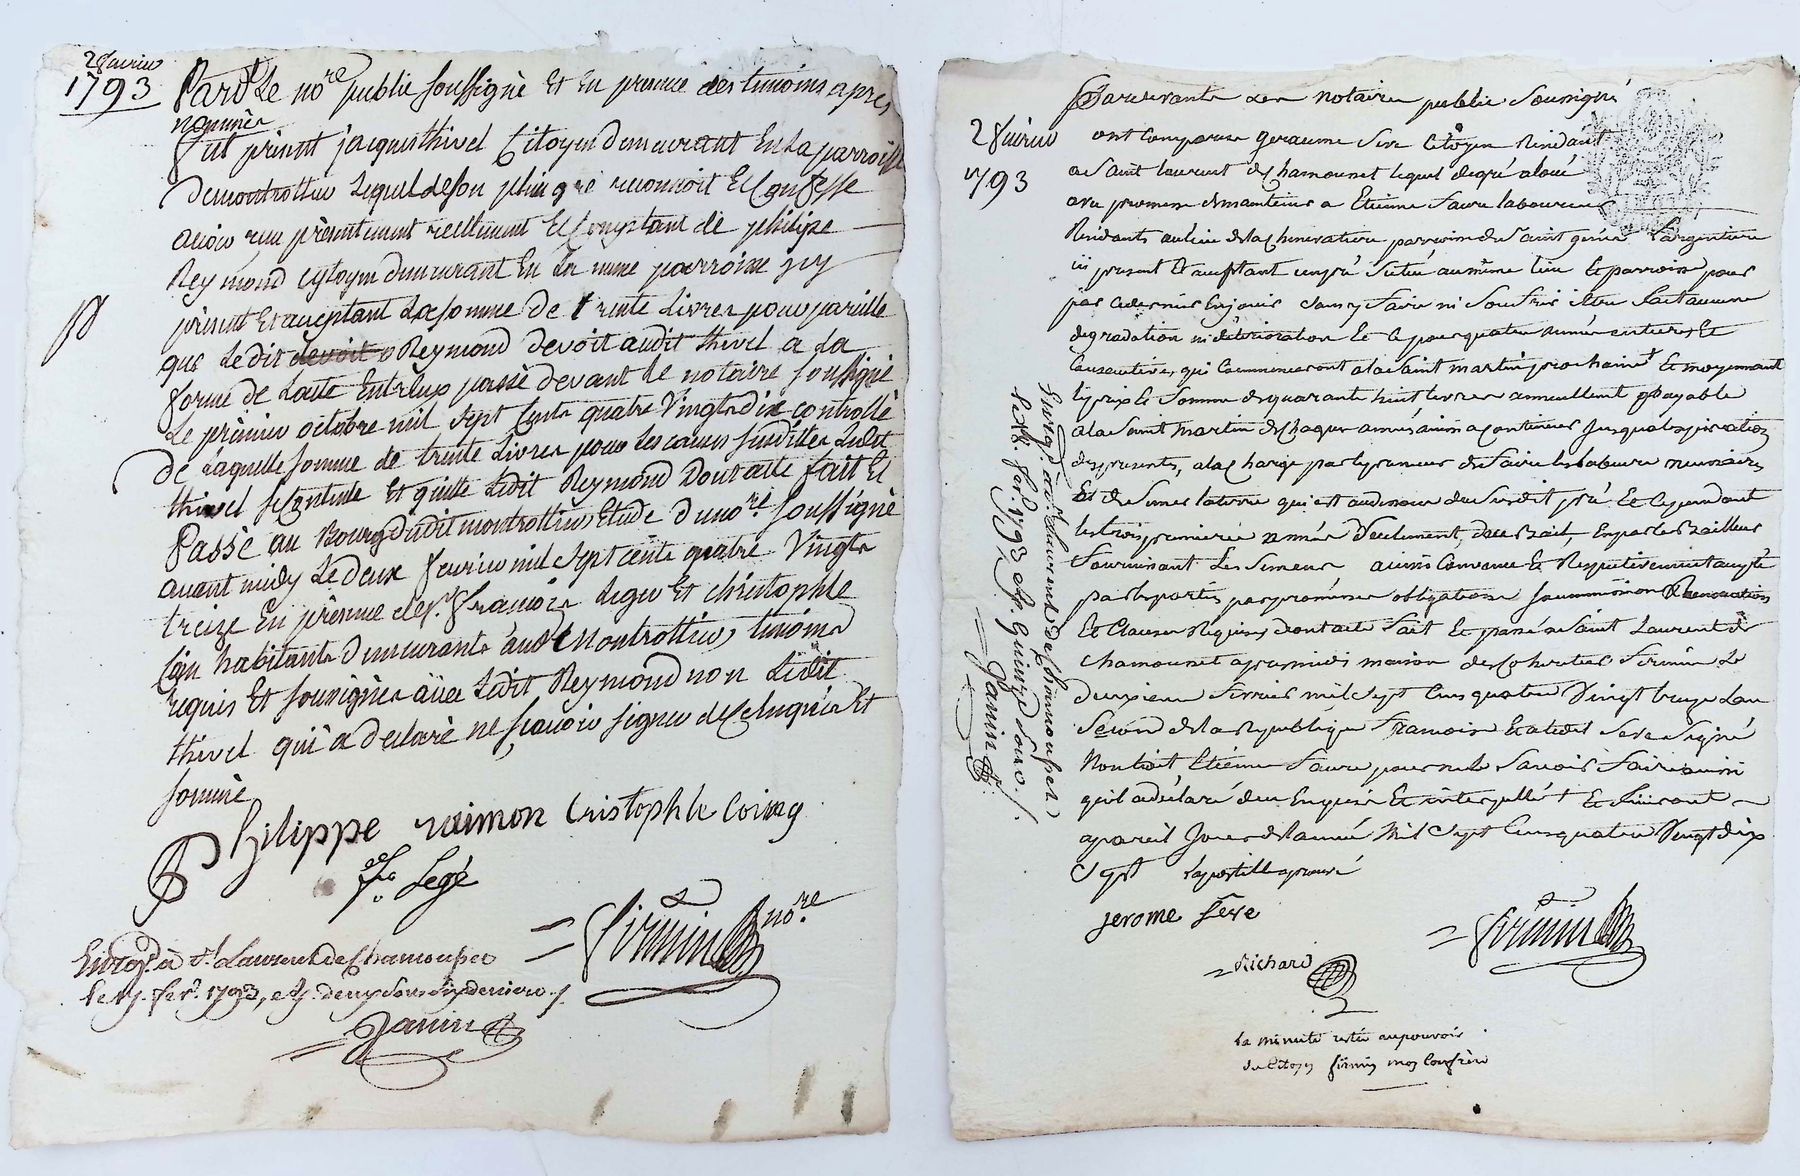 2 fevrier
1793
Pard. Le no.re public soussigné Et En presence des temoins apres
nommés
fut présent jacques thivel Citoyen demeurant En La parroisse
de montrottier Lequel de son plein gré reconnoit Et Confesse
avoir reçu présentement reellement Et Comptant de philipe
Reymond cytoyen demeurant En La meme parroisse icy
présent Et acceptant La somme de trente Livres pour pareille
que Ledit devoit Reymond devoit audit thivel a La
forme de L'acte Entr'eux passé devant Le notaire soussigné
Le prémier octobre mil sept Cents quatre Vingts dix controllé
de Laquelle somme de trente Livres pour Les causes susdittes Ledit
thivel se Contente Et quitte Ledit Reymond Dont acte fait Et
Passé au Bourg dudit montrottier Etude du no.re soussigné
avant midy Le deux fevrier mil sept cents quatre Vingts
treize En présence de s.r françois Legé Et christophle
habitants demeurants audit Montrottier, temoins
requis Et soussignés avec Ledit Reymond non Ledit
thivel qui a declaré ne sçavoir signer de Ce Enquis Et
sommé
philippe reimon Cristophle Coing
f.s Legé
Firmin no.re
Enreg. à S.t Laurent de Chamousset
le fev. 1793,
Janin
2 fevrier
1793
Pardevant Les notaires publics Soussigné
ont Comparu geraume Seve Citoyen Residant
a Saint laurent de Chamousset lequel degré a loué
avec promesse de maintenir a Etienne Favre laboureur
Residants au lieu de la parroisse de Saint genis Largentiere
ici present Et acceptant un pré Situé au même lieu Et parroisse pour
par ce dernier En jouir Sans y faire ni Souffrir être fait aucune
degradation ni détérioration Et Ce pour quatre années entieres Et
Consecutives, qui Commenceront a la Saint martin prochaine Et moyennant
le prix Et Somme de quarante huit livres annuellement payable
a la Saint Martin de Chaque année ainsi a Continuer jusqu'a l'expiration
des presentes, a la Charge par le preneur de faire les labeurs necessaires
Et de Semer la terre qui est audessus du Susdit pré Et Cependant
les trois premieres années Seulement, du Bail, En par le Bailleur
Fournissant Les Semences ainsi Convenu Et Respectivement accepté
par les parties par promesses obligations Soummission Renonciation
Et Clauses Requises dont acte Fait Et passé a Saint Laurent de
Chamousset apres midi maison des Cohéritier Firmin Le
deuxieme Fevrier mil Sept Cens quatre Vingt treize L'an
Second de la Republique Françoise Et a Ledit Seve Signé
Non Ledit Etienne Favre pour ne le Savoir Faire ainsi
qu'il a déclaré de ce Enquis Et interpellé Et Finissant
a pareil Jour de l'année Mil Sept Cens quatre Vingt dix
Sept l'apostille aprouvé
jerome sève
Firmin
Richard
la minute restée au pouvoir
du Citoyen firmin mon Confrère
Enreg. à S. Laurent de Chamousset
le fev. 1793 Quinze sous.
Janin